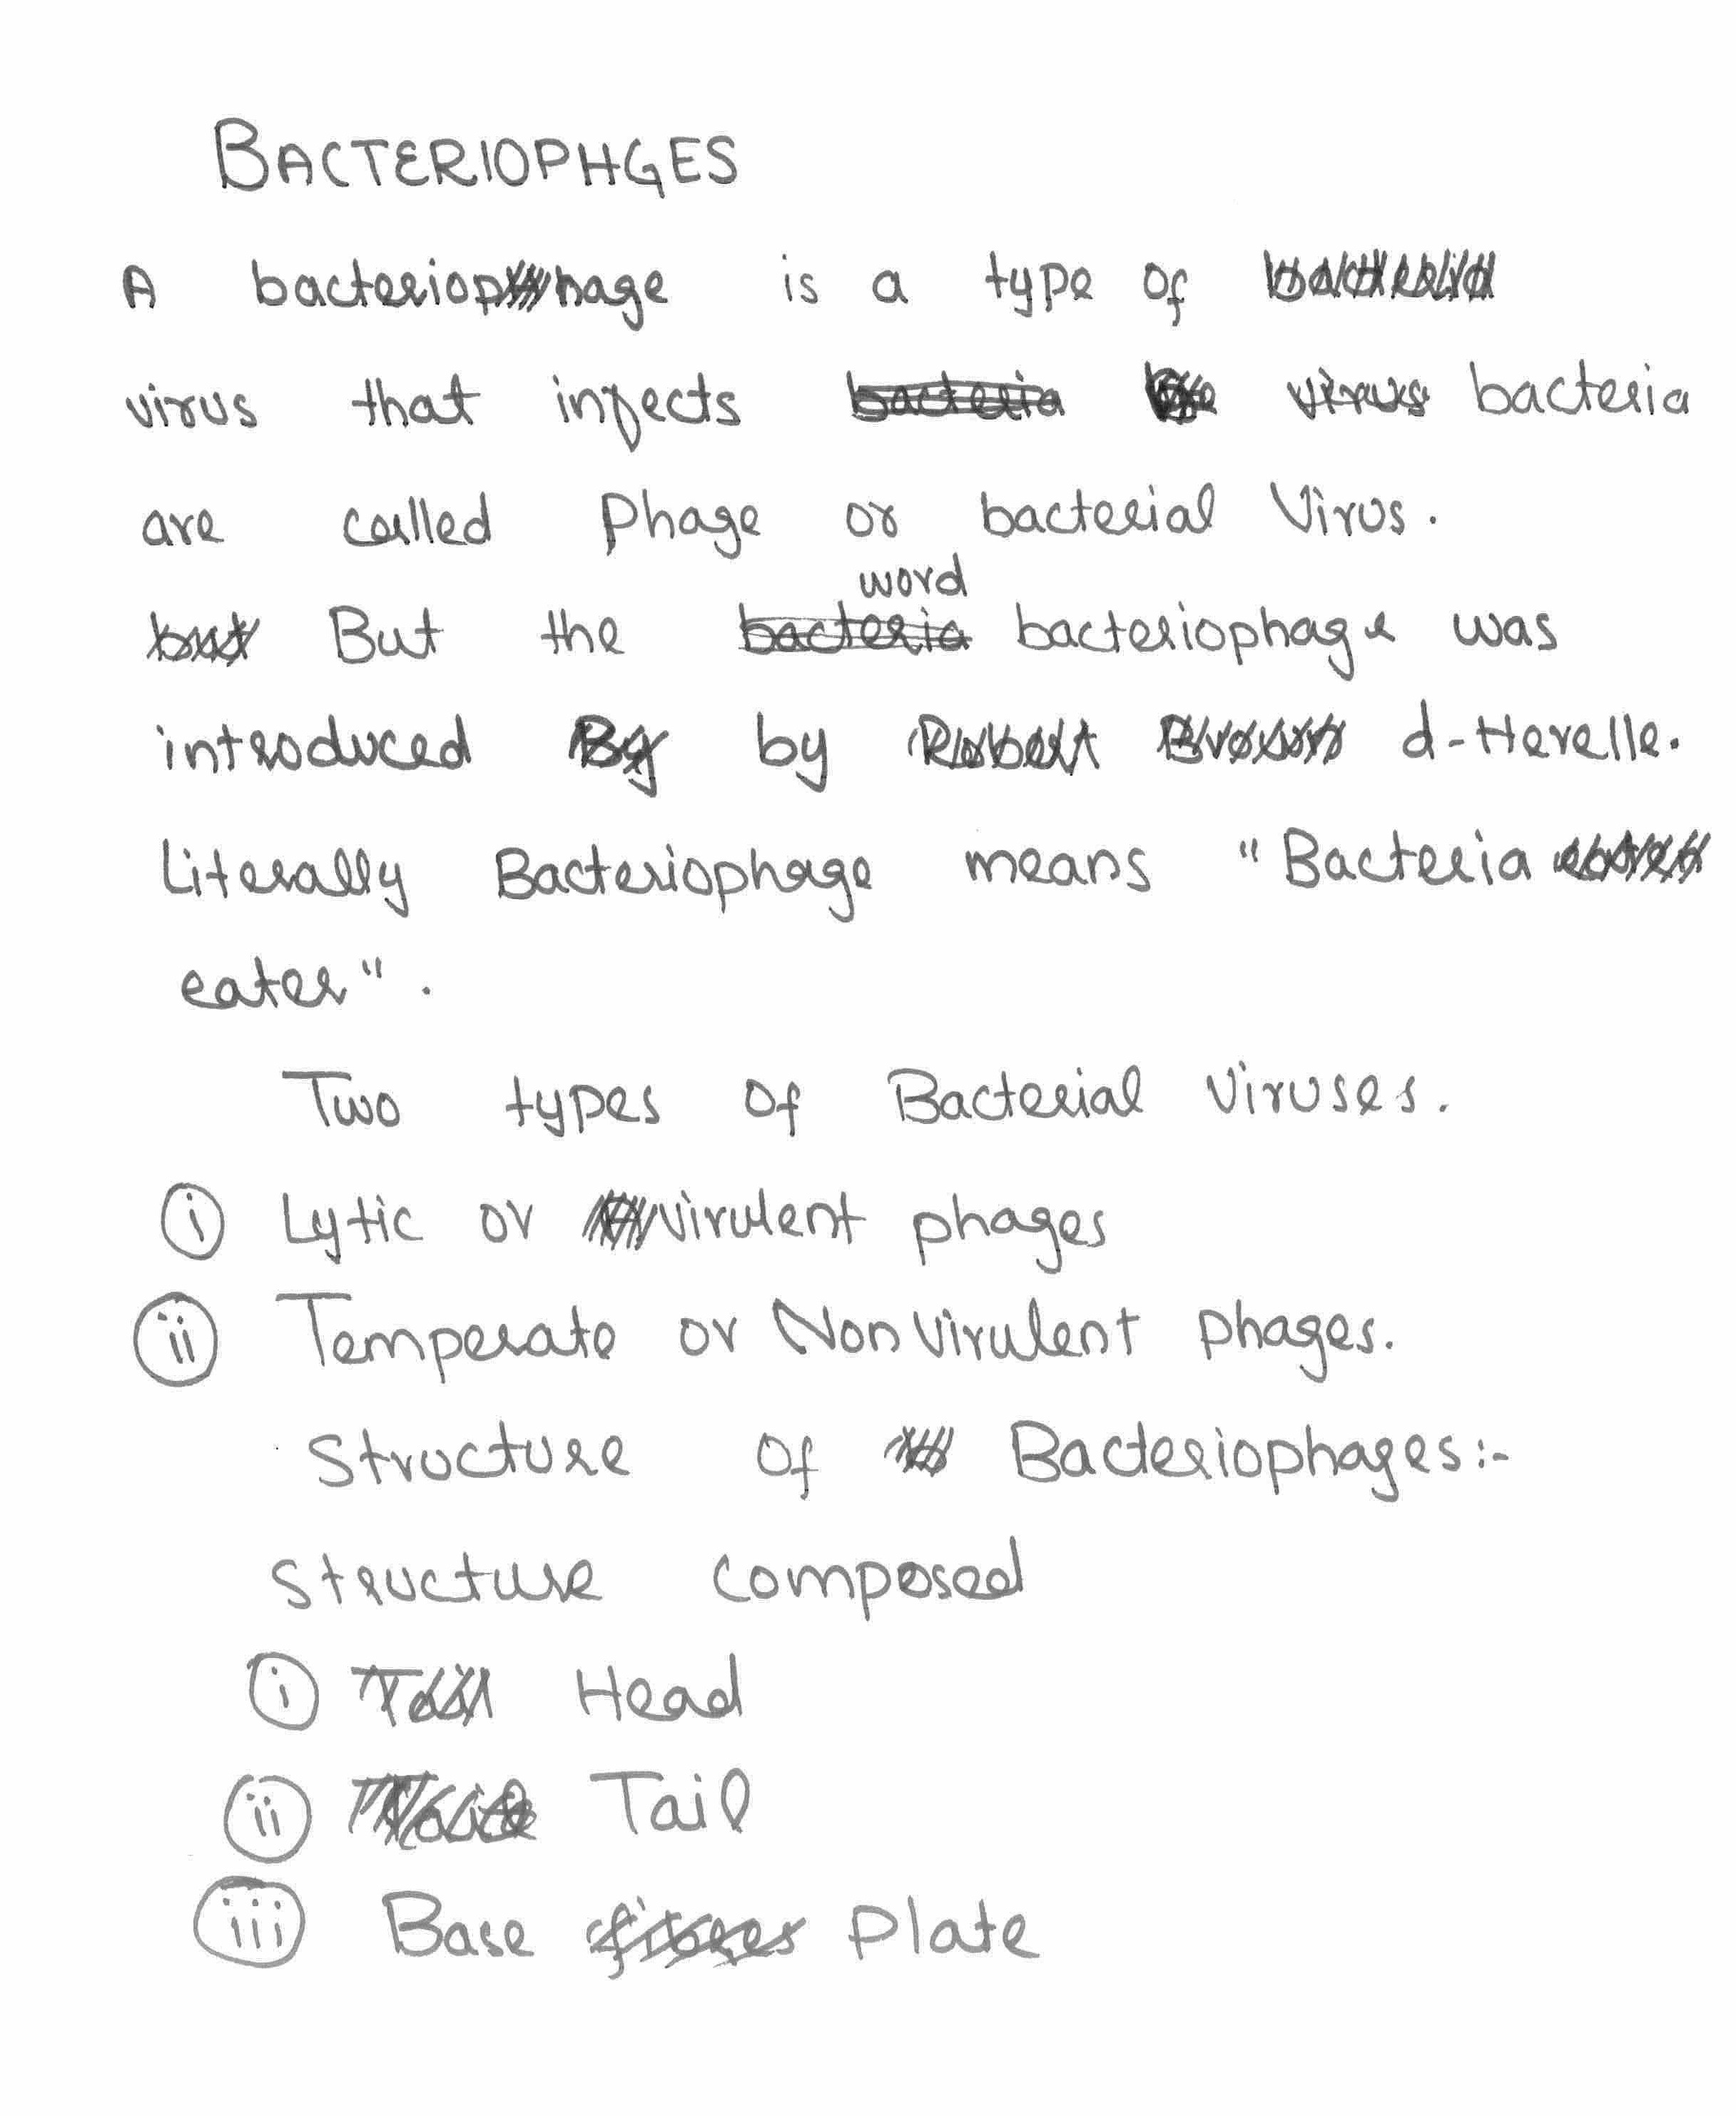 BACTERIOPHGES
A bacteriophage is a type of bacteria
virus that infects bacteria virus bacteria
are called Phage or bacterial Virus.
word
but But the bacteria bacteriophage was
introduced By by Robert Brown d-Herelle.
Literally Bacteriophage means "Bacteria
eater".
Two types of Bacterial Viruses.
i Lytic or virulent phages
ii Temperate or Nonvirulent phages.
Structure Of Bacteriophages:-
Structure composed
i Tail Head
ii Tail
iii Base fibers Plate